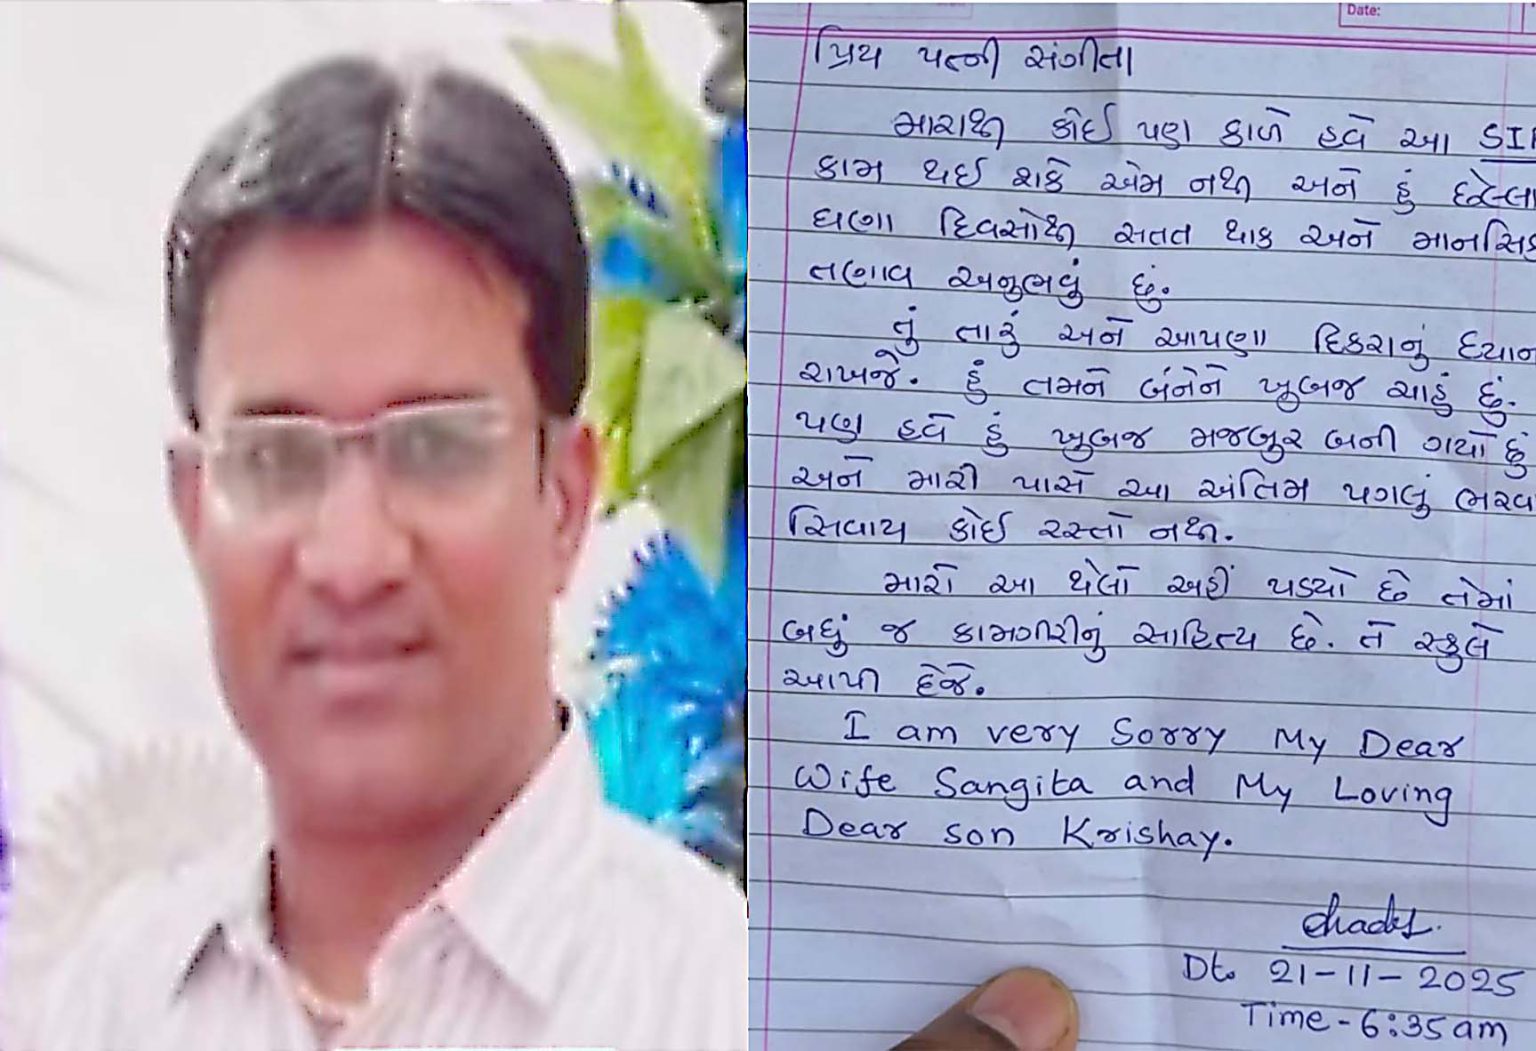 Date:
પ્રિય પત્ની સંગીતા
મારાથી કોઈ પણ કાળે હવે આ SIR
કામ થઈ શકે એમ નથી અને હું છેલ્લા
ઘણા દિવસોથી સતત થાક અને માનસિક
તણાવ અનુભવું છું.
તું તારું અને આપણા દિકરાનું ધ્યાન
રાખજે. હું તમને બંનેને ખુબજ ચાહું છું.
પણ હવે હું ખુબજ મજબુર બની ગયો છું
અને મારી પાસે આ અંતિમ પગલું ભરવા
સિવાય કોઈ રસ્તો નથી.
મારો આ થેલો અહીં પડ્યો છે તેમાં
બધું જ કામગીરીનું સાહિત્ય છે. તે સ્કુલે
આપી દેજે.
I am very Sorry My Dear
Wife Sangita and My Loving
Dear son Krishay.
Dt. 21-11-2025
Time-6:35am